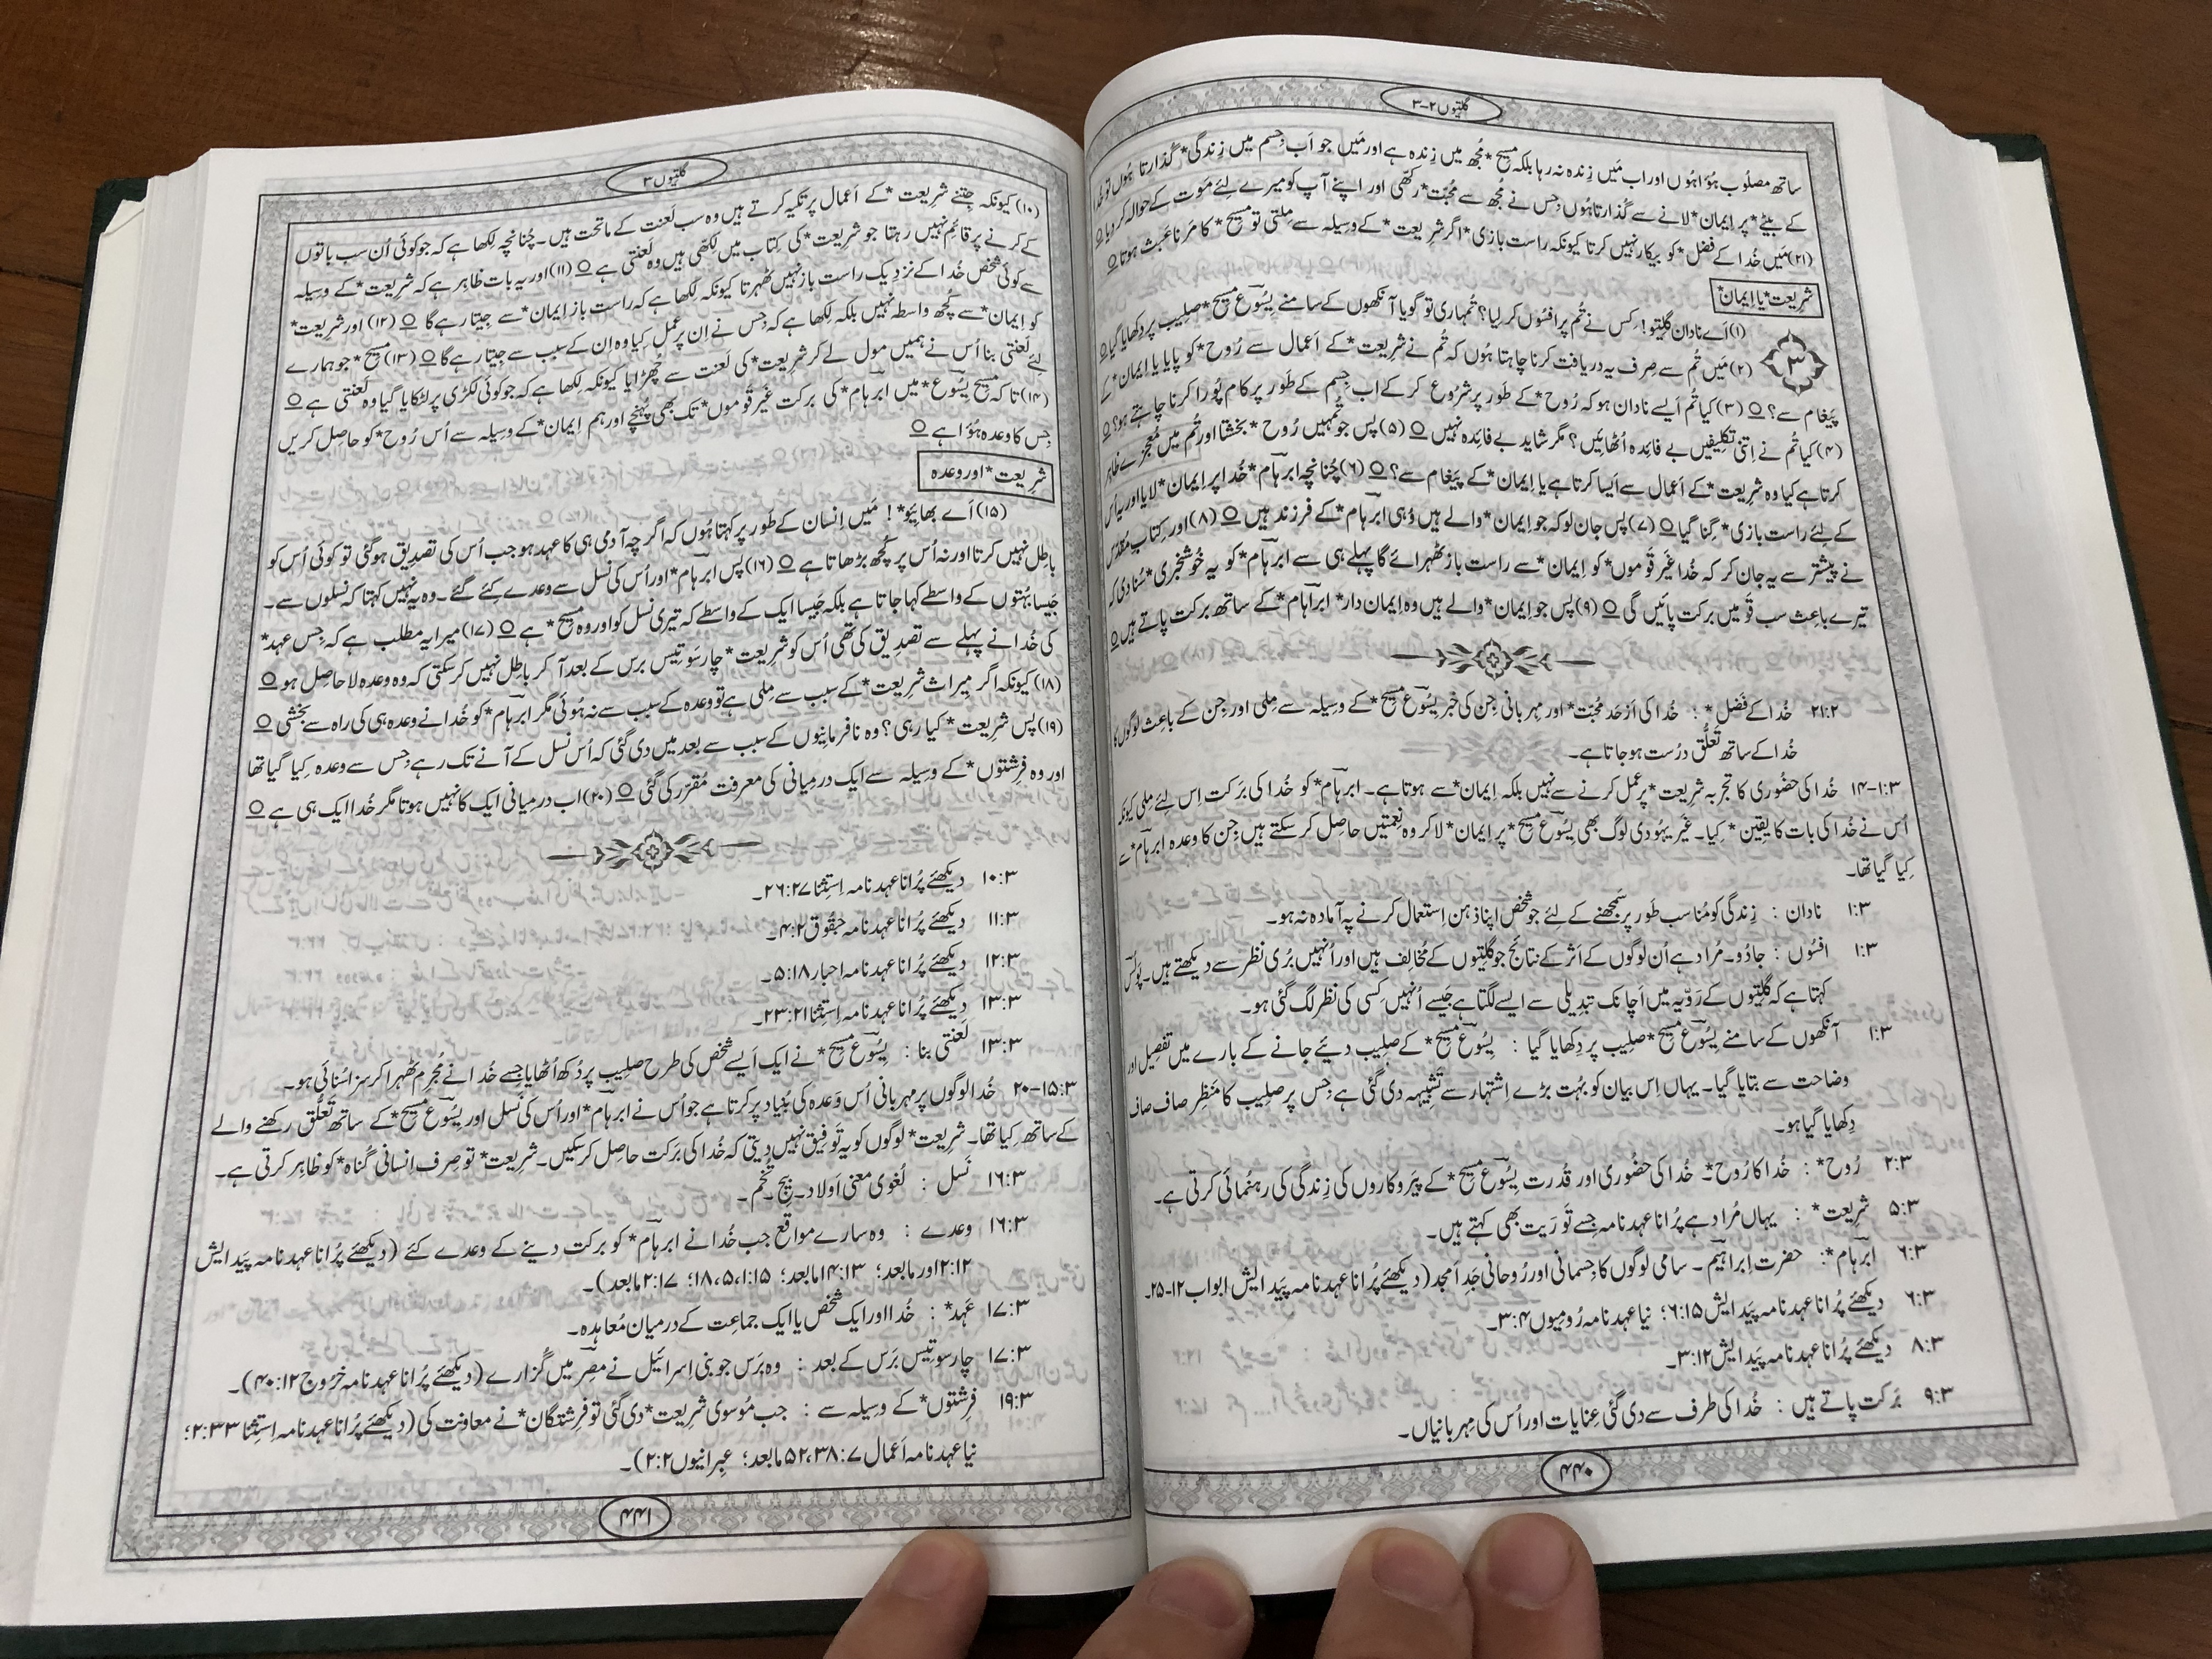 گلتیوں ۲-۳
ساتھ مصلُوب ہُؤا ہُوں اور اب مَیں زِندہ نہ رہا بلکہ مسِیح* مُجھ میں زِندہ ہے اور مَیں جو اَب جِسم میں زِندگی* گُذارتا ہُوں تو خُدا
کے بیٹے* پر اِیمان* لانے سے گُذارتا ہُوں جِس نے مُجھ سے مُحبّت* رکھّی اور اپنے آپ کو میرے لِئے مَوت کے حوالہ کر دِیا ○
(۲۱) مَیں خُدا کے فضل* کو بیکار نہیں کرتا کیونکہ راست بازی* اگر شرِیعت* کے وسِیلہ سے مِلتی تو مسِیح* کا مرنا عبث ہوتا ○
شرِیعت* یا اِیمان*
۳
(۱) اَے نادان گلِتیو! کِس نے تُم پر افسُوں کر لِیا؟ تُمہاری تو گویا آنکھوں کے سامنے یِسُوع مسِیح* صلِیب پر دِکھایا گیا ○
(۲) مَیں تُم سے صِرف یہ دریافت کرنا چاہتا ہُوں کہ تُم نے شرِیعت* کے اَعمال سے رُوح* کو پایا یا اِیمان* کے
پَیغام سے؟ ○ (۳) کیا تُم اَیسے نادان ہو کہ رُوح* کے طَور پر شرُوع کر کے اب جِسم کے طَور پر کام پُورا کرنا چاہتے ہو؟ ○
(۴) کیا تُم نے اِتنی تکلِیفیں بے فائِدہ اُٹھائیں؟ مگر شاید بے فائِدہ نہیں ○ (۵) پس جو تُمہیں رُوح* بخشتا اور تُم میں مُعجزے ظاہِر
کرتا ہے کیا وہ شرِیعت* کے اَعمال سے اَیسا کرتا ہے یا اِیمان* کے پَیغام سے؟ ○ (۶) چُنانچہ ابرہام* خُدا پر اِیمان* لایا اور یہ اُس
کے لِئے راست بازی* گِنا گیا ○ (۷) پس جان لو کہ جو اِیمان* والے ہیں وُہی ابرہام* کے فرزند ہیں ○ (۸) اور کِتابِ مُقدّس
نے پیشتر سے یہ جان کر کہ خُدا غَیر قَوموں* کو اِیمان* سے راست باز ٹھہرائے گا پہلے ہی سے ابرہام* کو یہ خُوشخبری* سُنا دی کہ
تیرے باعِث سب قَومیں برکت پائیں گی ○ (۹) پس جو اِیمان* والے ہیں وہ اِیمان دار* ابرہام* کے ساتھ برکت پاتے ہیں ○
۲۱:۲ خُدا کے فضل* : خُدا کی اَز حَد مُحبّت* اور مہربانی جِن کی خبر یِسُوع مسِیح* کے وسِیلہ سے مِلی اور جِن کے باعِث لوگوں کا
خُدا کے ساتھ تعلُّق درُست ہو جاتا ہے۔
۱:۳-۱۴ خُدا کی حضُوری کا تجربہ شرِیعت* پر عمل کرنے سے نہیں بلکہ اِیمان* سے ہوتا ہے۔ ابرہام* کو خُدا کی برکت اِس لِئے مِلی کیونکہ
اُس نے خُدا کی بات کا یقِین* کِیا۔ غَیر یہُودی لوگ بھی یِسُوع مسِیح* پر اِیمان* لا کر وہ نِعمتیں حاصِل کر سکتے ہیں جِن کا وعدہ ابرہام* سے
کِیا گیا تھا۔
۱:۳ نادان : زِندگی کو مُناسب طَور پر سمجھنے کے لِئے جو شخص اپنا ذہن اِستعمال کرنے پہ آمادہ نہ ہو۔
۱:۳ افسُوں : جادُو۔ مُراد ہے اُن لوگوں کے اَثر کے نتائج جو گلِتیوں کے مُخالِف ہیں اور اُنہیں بُری نظر سے دیکھتے ہیں۔ پَولُس
کہتا ہے کہ گلِتیوں کے رَوِیّہ میں اَچانک تبدِیلی سے ایسے لگتا ہے جَیسے اُنہیں کِسی کی نظر لگ گئی ہو۔
۱:۳ آنکھوں کے سامنے یِسُوع مسِیح* صلِیب پر دِکھایا گیا : یِسُوع مسِیح* کے صلِیب دِئیے جانے کے بارے میں تفصِیل اور
وضاحت سے بتایا گیا۔ یہاں اِس بیان کو بہُت بڑے اشتہار سے تشبِیہہ دی گئی ہے جِس پر صلِیب کا مَنظر صاف صاف
دِکھایا گیا ہو۔
۲:۳ رُوح* : خُدا کا رُوح*۔ خُدا کی حضُوری اور قُدرت یِسُوع مسِیح* کے پَیروکاروں کی زِندگی کی رہنُمائی کرتی ہے۔
۵:۳ شرِیعت* : یہاں مُراد ہے پُرانا عہد نامہ جِسے تَورَیت بھی کہتے ہیں۔
۶:۳ ابرہام* : حضرت اِبراہِیم۔ سامی لوگوں کا جِسمانی اور رُوحانی جَدِ اَمجد (دیکھئے پُرانا عہد نامہ پَیدایش ابواب ۱۲-۲۵)۔
۶:۳ دیکھئے پُرانا عہد نامہ پَیدایش ۶:۱۵؛ نیا عہد نامہ رُومیوں ۳:۴۔
۸:۳ دیکھئے پُرانا عہد نامہ پَیدایش ۳:۱۲۔
۹:۳ بَرکت پاتے ہیں : خُدا کی طرف سے دی گئی عِنایات اور اُس کی مہربانیاں۔
۴۴۰
گلتیوں ۳
(۱۰) کیونکہ جِتنے شرِیعت* کے اَعمال پر تکیہ کرتے ہیں وہ سب لَعنت کے ماتحت ہیں۔ چُنانچہ لِکھا ہے کہ جو کوئی اُن سب باتوں
کے کرنے پر قائم نہیں رہتا جو شرِیعت* کی کِتاب میں لِکھّی ہیں وہ لَعنتی ہے ○ (۱۱) اور یہ بات ظاہِر ہے کہ شرِیعت* کے وسِیلہ
سے کوئی شخص خُدا کے نزدِیک راست باز نہیں ٹھہرتا کیونکہ لِکھا ہے کہ راست باز اِیمان* سے جِیتا رہے گا ○ (۱۲) اور شرِیعت*
کو اِیمان* سے کُچھ واسطہ نہیں بلکہ لِکھا ہے کہ جِس نے اِن پر عمل کِیا وہ ان کے سبب سے جِیتا رہے گا ○ (۱۳) مسِیح* جو ہمارے
لِئے لَعنتی بنا اُس نے ہمیں مول لے کر شرِیعت* کی لَعنت سے چُھڑایا کیونکہ لِکھا ہے کہ جو کوئی لکڑی پر لٹکایا گیا وہ لَعنتی ہے ○
(۱۴) تاکہ مسِیح یِسُوع* میں ابرہام* کی برکت غَیر قَوموں* تک بھی پُہنچے اور ہم اِیمان* کے وسِیلہ سے اُس رُوح* کو حاصِل کریں
جِس کا وعدہ ہُؤا ہے ○
شرِیعت* اور وعدہ
(۱۵) اَے بھائِیو*! مَیں اِنسان کے طَور پر کہتا ہُوں کہ اگرچہ آدمی ہی کا عہد ہو جب اُس کی تصدِیق ہو گئی تو کوئی اُس کو
باطِل نہیں کرتا اور نہ اُس پر کُچھ بڑھاتا ہے ○ (۱۶) پس ابرہام* اور اُس کی نسل سے وعدے کِئے گئے۔ وہ یہ نہیں کہتا کہ نسلوں سے۔
جَیسا بہُتوں کے واسطے کہا جاتا ہے بلکہ جَیسا ایک کے واسطے کہ تیری نسل کو اور وہ مسِیح* ہے ○ (۱۷) میرا یہ مطلب ہے کہ جِس عہد*
کی خُدا نے پہلے سے تصدِیق کی تھی اُس کو شرِیعت* چار سَو تِیس برس کے بعد آ کر باطِل نہیں کر سکتی کہ وہ وعدہ لاحاصِل ہو ○
(۱۸) کیونکہ اگر مِیراث شرِیعت* کے سبب سے مِلی ہے تو وعدہ کے سبب سے نہ ہُوئی مگر ابرہام* کو خُدا نے وعدہ ہی کی راہ سے بخشی ○
(۱۹) پس شرِیعت* کیا رہی؟ وہ نافرمانیوں کے سبب سے بعد میں دی گئی کہ اُس نسل کے آنے تک رہے جِس سے وعدہ کِیا گیا تھا
اور وہ فرِشتوں* کے وسِیلہ سے ایک درمِیانی کی معرفت مُقرّر کی گئی ○ (۲۰) اب درمِیانی ایک کا نہیں ہوتا مگر خُدا ایک ہی ہے ○
۱۰:۳ دیکھئے پُرانا عہد نامہ اِستِثنا ۲۶:۲۷۔
۱۱:۳ دیکھئے پُرانا عہد نامہ حبقُّوق ۴:۲۔
۱۲:۳ دیکھئے پُرانا عہد نامہ احبار ۵:۱۸۔
۱۳:۳ دیکھئے پُرانا عہد نامہ اِستِثنا ۲۳:۲۱۔
۱۳:۳ لَعنتی بنا : یِسُوع مسِیح* نے ایک اَیسے شخص کی طرح صلِیب پر دُکھ اُٹھایا جِسے خُدا نے مُجرِم ٹھہرا کر سزا سُنائی ہو۔
۱۵:۳-۲۰ خُدا لوگوں پر مہربانی اُس وَعدہ کی بُنیاد پر کرتا ہے جو اُس نے ابرہام* اور اُس کی نَسل اور یِسُوع مسِیح* کے ساتھ تعلُّق رکھنے والے
کے ساتھ کِیا تھا۔ شرِیعت* لوگوں کو یہ تَوفِیق نہیں دیتی کہ خُدا کی بَرکت حاصِل کر سکیں۔ شرِیعت* تو صِرف اِنسانی گُناہ* کو ظاہِر کرتی ہے۔
۱۶:۳ نَسل : لُغوی معنی اَولاد۔ بِیج۔ تُخم۔
۱۶:۳ وعدے : وہ سارے مواقع جب خُدا نے ابرہام* کو برکت دینے کے وعدے کئے (دیکھئے پُرانا عہد نامہ پَیدایش
۲:۱۲ اور مابعد؛ ۱۴:۱۳ مابعد؛ ۱:۱۵، ۵، ۱۸؛ ۲:۱۷ مابعد)۔
۱۷:۳ عَہد* : خُدا اور ایک شخص یا ایک جماعت کے درمیان مُعاہدہ۔
۱۷:۳ چار سو تِیس بَرس کے بعد : وہ بَرس جو بنی اِسرائیل نے مِصر میں گُزارے (دیکھئے پُرانا عہد نامہ خرُوج ۴۰:۱۲)۔
۱۹:۳ فرِشتوں* کے وسِیلہ سے : جب مُوسوی شرِیعت* دی گئی تو فرِشتگان* نے معاونت کی (دیکھئے پُرانا عہد نامہ اِستِثنا ۲:۳۳؛
نیا عہد نامہ اَعمال ۳۸:۷، ۵۲ مابعد؛ عِبرانیوں ۲:۲)۔
۴۴۱